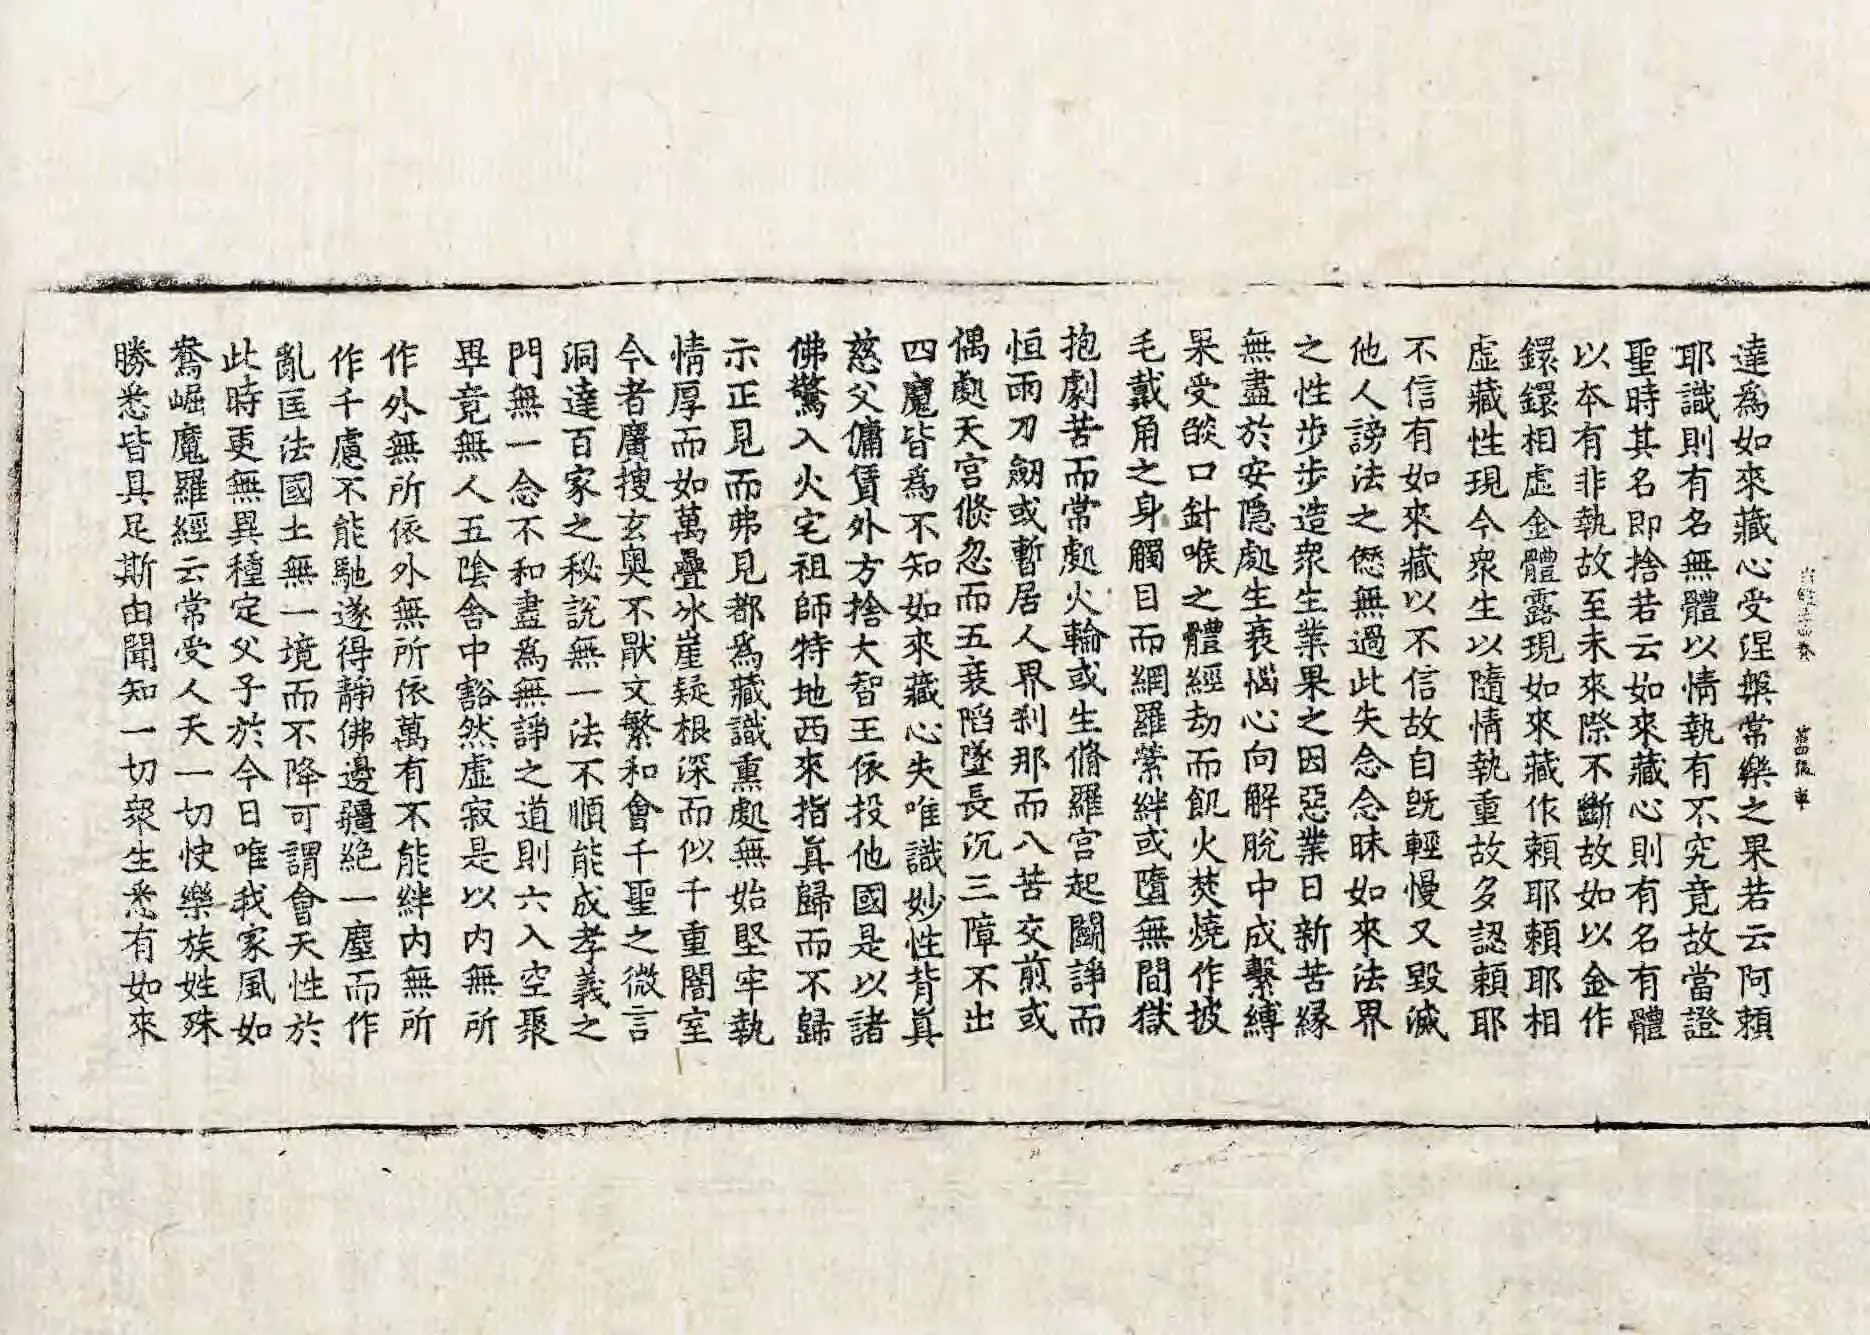 達為如來藏心受涅槃常樂之果若云阿賴
耶識則有名無體以情執有不究竟故當證
聖時其名即捨若云如來藏心則有名有體
以本有非執故至未來際不斷故如以金作
鐶鐶相虛金體露現如來藏作賴耶賴耶相
虛藏性現今衆生以隨情執重故多認賴耶
不信有如來藏以不信故自旣輕慢又毀滅
他人謗法之愆無過此失念念昧如來法界
之性步步造衆生業果之因惡業日新苦緣
無盡於安隱處生衰惱心向解脫中成繫縛
果受餤口針喉之體經劫而飢火焚燒作披
毛戴角之身觸目而網羅縈絆或墮無間獄
抱劇苦而常處火輪或生脩羅宮起鬪諍而
恒雨刀劒或暫居人界刹那而八苦交煎或
偶處天宮倏忽而五衰陷墜長沉三障不出
四魔皆為不知如來藏心失唯識妙性背眞
慈父傭賃外方捨大智王依投他國是以諸
佛驚入火宅祖師特地西來指眞歸而不歸
示正見而弗見都為藏識熏處無始堅牢執
情厚而如萬疊冰崖疑根深而似千重闇室
今者廣搜玄奧不猒文繁和會千聖之微言
洞達百家之秘說無一法不順能成孝義之
門無一念不和盡為無諍之道則六入空聚
畢竟無人五陰舍中豁然虛寂是以內無所
作外無所依外無所依萬有不能絆內無所
作千慮不能馳遂得靜佛邊疆絶一塵而作
亂匡法國土無一境而不降可謂會天性於
此時更無異種定父子於今日唯我家風如
鴦崛魔羅經云常受人天一切快樂族姓殊
勝悉皆具足斯由聞知一切衆生悉有如來